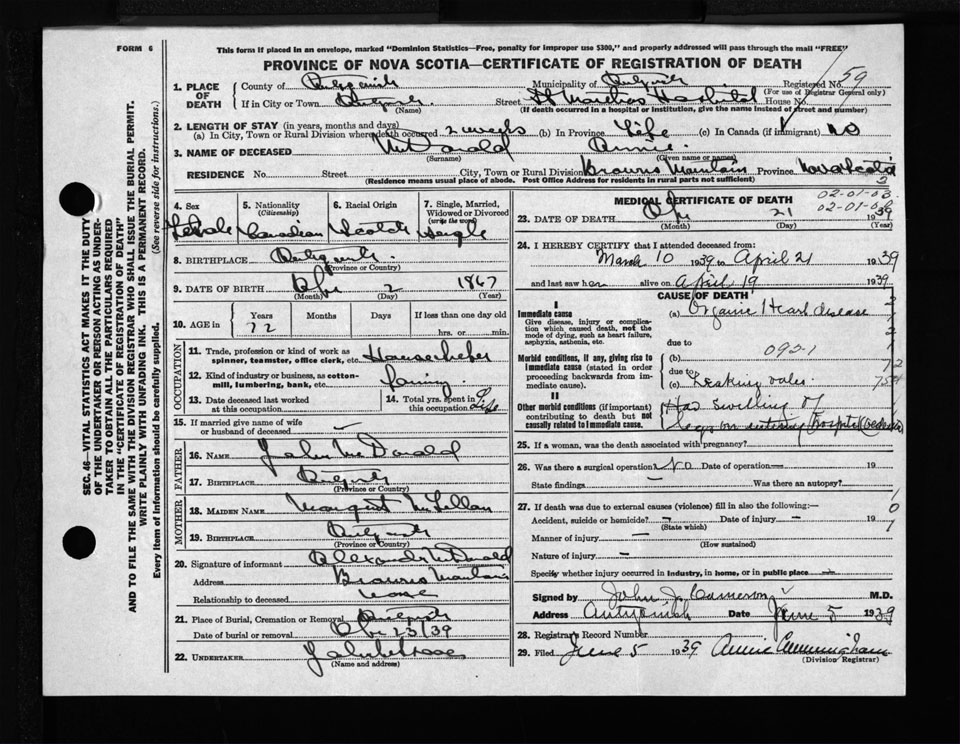 FORM 6
This form if placed in an envelope, marked "Dominion Statistics—Free, penalty for improper use $300," and properly addressed will pass through the mail "FREE"
PROVINCE OF NOVA SCOTIA—CERTIFICATE OF REGISTRATION OF DEATH
59
1. PLACE OF DEATH
County of Municipality of Registered No.
(For use of Registrar General only)
If in City or Town Street St Marthas Hospital House No.
(Name) (If death occurred in a hospital or institution, give the name instead of street and number)
2. LENGTH OF STAY (in years, months and days)
(a) In City, Town or Rural Division where death occurred 2 weeks (b) In Province Life (c) In Canada (if immigrant) no
3. NAME OF DECEASED McDonald Annie
(Surname) (Given name or names)
RESIDENCE No. Street City, Town or Rural Division Browns Mountain Province Nova Scotia
(Residence means usual place of abode. Post Office Address for residents in rural parts not sufficient)
4. Sex 5. Nationality (Citizenship) 6. Racial Origin 7. Single, Married, Widowed or Divorced (write the word)
Female Canadian Scotch Single
8. BIRTHPLACE
(Province or Country)
9. DATE OF BIRTH 2 1867
(Month) (Day) (Year)
10. AGE in Years Months Days If less than one day old
72 hrs. or min.
OCCUPATION
11. Trade, profession or kind of work as spinner, teamster, office clerk, etc. Housekeeper
12. Kind of industry or business, as cotton-mill, lumbering, bank, etc. farming
13. Date deceased last worked at this occupation 14. Total yrs. spent in this occupation Life
15. If married give name of wife or husband of deceased —
FATHER
16. Name John McDonald
17. BIRTHPLACE
(Province or Country)
MOTHER
18. MAIDEN NAME Margaret McLellan
19. BIRTHPLACE
(Province or Country)
20. Signature of informant Alexander McDonald
Address Browns Mountain
Relationship to deceased none
21. Place of Burial, Cremation or Removal
Date of burial or removal 23/39
22. UNDERTAKER
(Name and address)
MEDICAL CERTIFICATE OF DEATH
02-01-03
02-01-03
23. DATE OF DEATH 21 1939
(Month) (Day) (Year)
24. I HEREBY CERTIFY that I attended deceased from:
March 10 1939 to April 21 1939
and last saw her alive on April 19 1939
CAUSE OF DEATH
I
Immediate cause (a) Organic Heart disease
Give disease, injury or complication which caused death, not the mode of dying, such as heart failure, asphyxia, asthenia, etc.
due to
(b) 092-1
Morbid conditions, if any, giving rise to immediate cause (stated in order proceeding backwards from immediate cause).
due to
(c) Leaking valve.
II
Other morbid conditions (if important) contributing to death but not causally related to immediate cause.
Had swelling of
legs on entering hospital
25. If a woman, was the death associated with pregnancy?
26. Was there a surgical operation No Date of operation — 19
State findings — Was there an autopsy?
27. If death was due to external causes (violence) fill in also the following:—
Accident, suicide or homicide? — Date of injury — 19
(State which)
Manner of injury —
(How sustained)
Nature of injury —
Specify whether injury occurred in industry, in home, or in public place —
Signed by John J. Cameron M.D.
Address Antigonish Date June 5 1939
28. Registrar's Record Number
29. Filed June 5 1939 Annie Cunningham
(Division Registrar)
SEC. 46—VITAL STATISTICS ACT MAKES IT THE DUTY
OF THE UNDERTAKER OR PERSON ACTING AS UNDERTAKER TO OBTAIN ALL THE PARTICULARS REQUIRED
IN THE "CERTIFICATE OF REGISTRATION OF DEATH"
AND TO FILE THE SAME WITH THE DIVISION REGISTRAR WHO SHALL ISSUE THE BURIAL PERMIT.
WRITE PLAINLY WITH UNFADING INK. THIS IS A PERMANENT RECORD.
Every item of information should be carefully supplied. (See reverse side for instructions.)